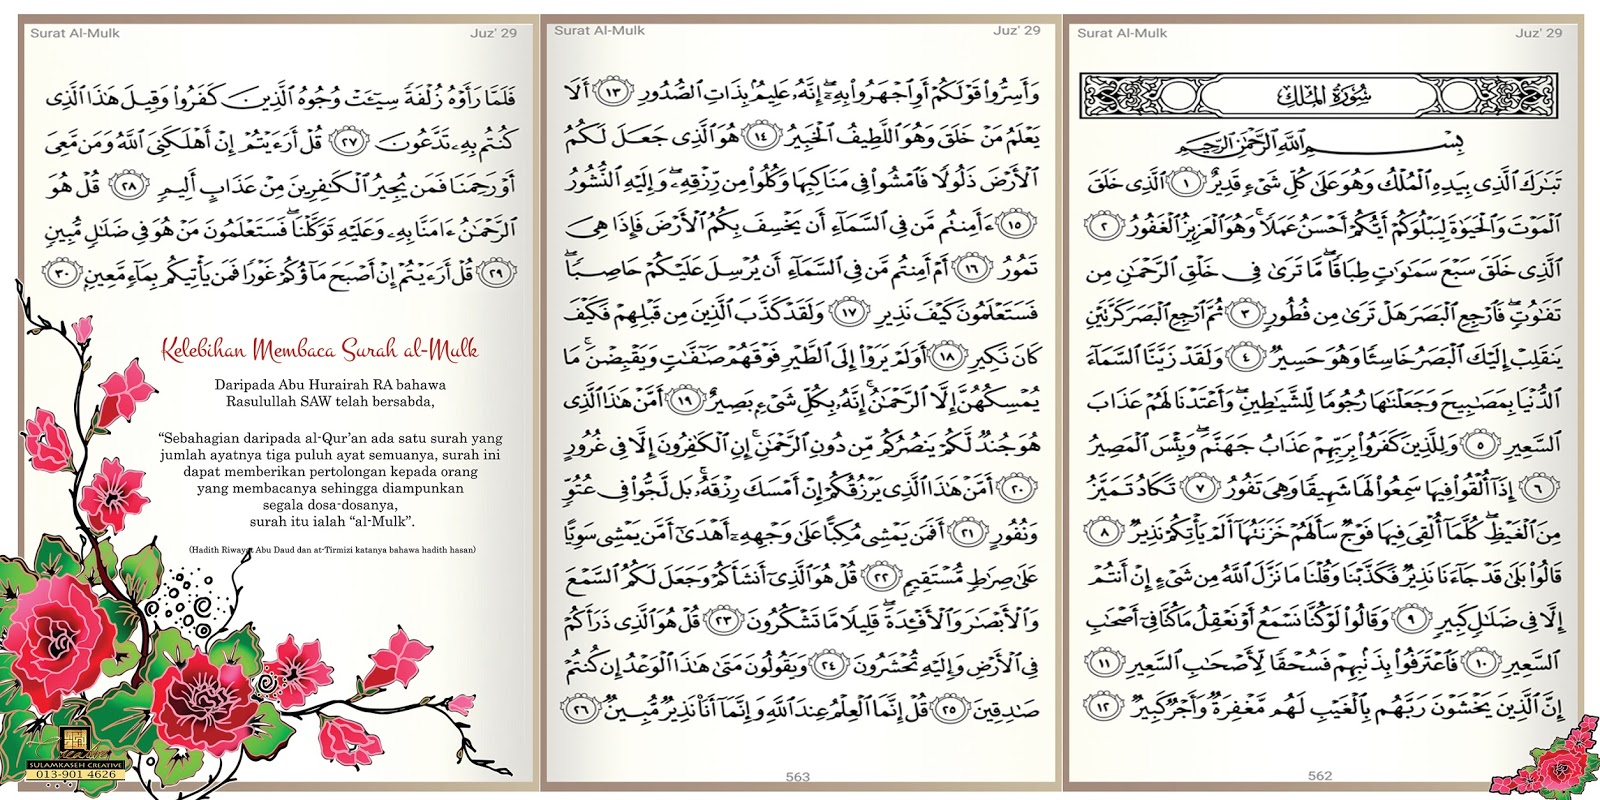 Surat Al-Mulk
Juz' 29
سُورَةُ الْمُلْكِ
بِسْمِ اللَّهِ الرَّحْمَٰنِ الرَّحِيمِ
تَبَٰرَكَ ٱلَّذِى بِيَدِهِ ٱلْمُلْكُ وَهُوَ عَلَىٰ كُلِّ شَىْءٍ قَدِيرٌ ١ ٱلَّذِى خَلَقَ
ٱلْمَوْتَ وَٱلْحَيَوٰةَ لِيَبْلُوَكُمْ أَيُّكُمْ أَحْسَنُ عَمَلًا ۚ وَهُوَ ٱلْعَزِيزُ ٱلْغَفُورُ ٢
ٱلَّذِى خَلَقَ سَبْعَ سَمَٰوَٰتٍ طِبَاقًا ۖ مَّا تَرَىٰ فِى خَلْقِ ٱلرَّحْمَٰنِ مِن
تَفَٰوُتٍ ۖ فَٱرْجِعِ ٱلْبَصَرَ هَلْ تَرَىٰ مِن فُطُورٍ ٣ ثُمَّ ٱرْجِعِ ٱلْبَصَرَ كَرَّتَيْنِ
يَنقَلِبْ إِلَيْكَ ٱلْبَصَرُ خَاسِئًا وَهُوَ حَسِيرٌ ٤ وَلَقَدْ زَيَّنَّا ٱلسَّمَآءَ
ٱلدُّنْيَا بِمَصَٰبِيحَ وَجَعَلْنَٰهَا رُجُومًا لِّلشَّيَٰطِينِ ۖ وَأَعْتَدْنَا لَهُمْ عَذَابَ
ٱلسَّعِيرِ ٥ وَلِلَّذِينَ كَفَرُوا۟ بِرَبِّهِمْ عَذَابُ جَهَنَّمَ ۖ وَبِئْسَ ٱلْمَصِيرُ
٦ إِذَآ أُلْقُوا۟ فِيهَا سَمِعُوا۟ لَهَا شَهِيقًا وَهِىَ تَفُورُ ٧ تَكَادُ تَمَيَّزُ
مِنَ ٱلْغَيْظِ ۖ كُلَّمَآ أُلْقِىَ فِيهَا فَوْجٌ سَأَلَهُمْ خَزَنَتُهَآ أَلَمْ يَأْتِكُمْ نَذِيرٌ ٨
قَالُوا۟ بَلَىٰ قَدْ جَآءَنَا نَذِيرٌ فَكَذَّبْنَا وَقُلْنَا مَا نَزَّلَ ٱللَّهُ مِن شَىْءٍ إِنْ أَنتُمْ
إِلَّا فِى ضَلَٰلٍ كَبِيرٍ ٩ وَقَالُوا۟ لَوْ كُنَّا نَسْمَعُ أَوْ نَعْقِلُ مَا كُنَّا فِىٓ أَصْحَٰبِ
ٱلسَّعِيرِ ١٠ فَٱعْتَرَفُوا۟ بِذَنۢبِهِمْ فَسُحْقًا لِّأَصْحَٰبِ ٱلسَّعِيرِ ١١
إِنَّ ٱلَّذِينَ يَخْشَوْنَ رَبَّهُم بِٱلْغَيْبِ لَهُم مَّغْفِرَةٌ وَأَجْرٌ كَبِيرٌ ١٢
562
Surat Al-Mulk
Juz' 29
وَأَسِرُّوا۟ قَوْلَكُمْ أَوِ ٱجْهَرُوا۟ بِهِۦٓ ۖ إِنَّهُۥ عَلِيمٌۢ بِذَاتِ ٱلصُّدُورِ ١٣ أَلَا
يَعْلَمُ مَنْ خَلَقَ وَهُوَ ٱللَّطِيفُ ٱلْخَبِيرُ ١٤ هُوَ ٱلَّذِى جَعَلَ لَكُمُ
ٱلْأَرْضَ ذَلُولًا فَٱمْشُوا۟ فِى مَنَاكِبِهَا وَكُلُوا۟ مِن رِّزْقِهِۦ ۖ وَإِلَيْهِ ٱلنُّشُورُ
١٥ ءَأَمِنتُم مَّن فِى ٱلسَّمَآءِ أَن يَخْسِفَ بِكُمُ ٱلْأَرْضَ فَإِذَا هِىَ
تَمُورُ ١٦ أَمْ أَمِنتُم مَّن فِى ٱلسَّمَآءِ أَن يُرْسِلَ عَلَيْكُمْ حَاصِبًا ۖ
فَسَتَعْلَمُونَ كَيْفَ نَذِيرِ ١٧ وَلَقَدْ كَذَّبَ ٱلَّذِينَ مِن قَبْلِهِمْ فَكَيْفَ
كَانَ نَكِيرِ ١٨ أَوَلَمْ يَرَوْا۟ إِلَى ٱلطَّيْرِ فَوْقَهُمْ صَٰٓفَّٰتٍ وَيَقْبِضْنَ ۚ مَا
يُمْسِكُهُنَّ إِلَّا ٱلرَّحْمَٰنُ ۚ إِنَّهُۥ بِكُلِّ شَىْءٍۭ بَصِيرٌ ١٩ أَمَّنْ هَٰذَا ٱلَّذِى
هُوَ جُندٌ لَّكُمْ يَنصُرُكُم مِّن دُونِ ٱلرَّحْمَٰنِ ۚ إِنِ ٱلْكَٰفِرُونَ إِلَّا فِى غُرُورٍ
٢٠ أَمَّنْ هَٰذَا ٱلَّذِى يَرْزُقُكُمْ إِنْ أَمْسَكَ رِزْقَهُۥ ۚ بَل لَّجُّوا۟ فِى عُتُوٍّ
وَنُفُورٍ ٢١ أَفَمَن يَمْشِى مُكِبًّا عَلَىٰ وَجْهِهِۦٓ أَهْدَىٰٓ أَمَّن يَمْشِى سَوِيًّا
عَلَىٰ صِرَٰطٍ مُّسْتَقِيمٍ ٢٢ قُلْ هُوَ ٱلَّذِىٓ أَنشَأَكُمْ وَجَعَلَ لَكُمُ ٱلسَّمْعَ
وَٱلْأَبْصَٰرَ وَٱلْأَفْـِٔدَةَ ۖ قَلِيلًا مَّا تَشْكُرُونَ ٢٣ قُلْ هُوَ ٱلَّذِى ذَرَأَكُمْ
فِى ٱلْأَرْضِ وَإِلَيْهِ تُحْشَرُونَ ٢٤ وَيَقُولُونَ مَتَىٰ هَٰذَا ٱلْوَعْدُ إِن كُنتُمْ
صَٰدِقِينَ ٢٥ قُلْ إِنَّمَا ٱلْعِلْمُ عِندَ ٱللَّهِ وَإِنَّمَآ أَنَا۠ نَذِيرٌ مُّبِينٌ ٢٦
563
Surat Al-Mulk
Juz' 29
فَلَمَّا رَأَوْهُ زُلْفَةً سِيٓـَٔتْ وُجُوهُ ٱلَّذِينَ كَفَرُوا۟ وَقِيلَ هَٰذَا ٱلَّذِى
كُنتُم بِهِۦ تَدَّعُونَ ٢٧ قُلْ أَرَءَيْتُمْ إِنْ أَهْلَكَنِىَ ٱللَّهُ وَمَن مَّعِىَ
أَوْ رَحِمَنَا فَمَن يُجِيرُ ٱلْكَٰفِرِينَ مِنْ عَذَابٍ أَلِيمٍ ٢٨ قُلْ هُوَ
ٱلرَّحْمَٰنُ ءَامَنَّا بِهِۦ وَعَلَيْهِ تَوَكَّلْنَا ۖ فَسَتَعْلَمُونَ مَنْ هُوَ فِى ضَلَٰلٍ مُّبِينٍ
٢٩ قُلْ أَرَءَيْتُمْ إِنْ أَصْبَحَ مَآؤُكُمْ غَوْرًا فَمَن يَأْتِيكُم بِمَآءٍ مَّعِينٍۭ ٣٠
Kelebihan Membaca Surah al-Mulk
Daripada Abu Hurairah RA bahawa
Rasulullah SAW telah bersabda,
“Sebahagian daripada al-Qur’an ada satu surah yang
jumlah ayatnya tiga puluh ayat semuanya, surah ini
dapat memberikan pertolongan kepada orang
yang membacanya sehingga diampunkan
segala dosa-dosanya,
surah itu ialah “al-Mulk”.
(Hadith Riwayat Abu Daud dan at-Tirmizi katanya bahawa hadith hasan)
SULAMKASEH CREATIVE
013-901 4626